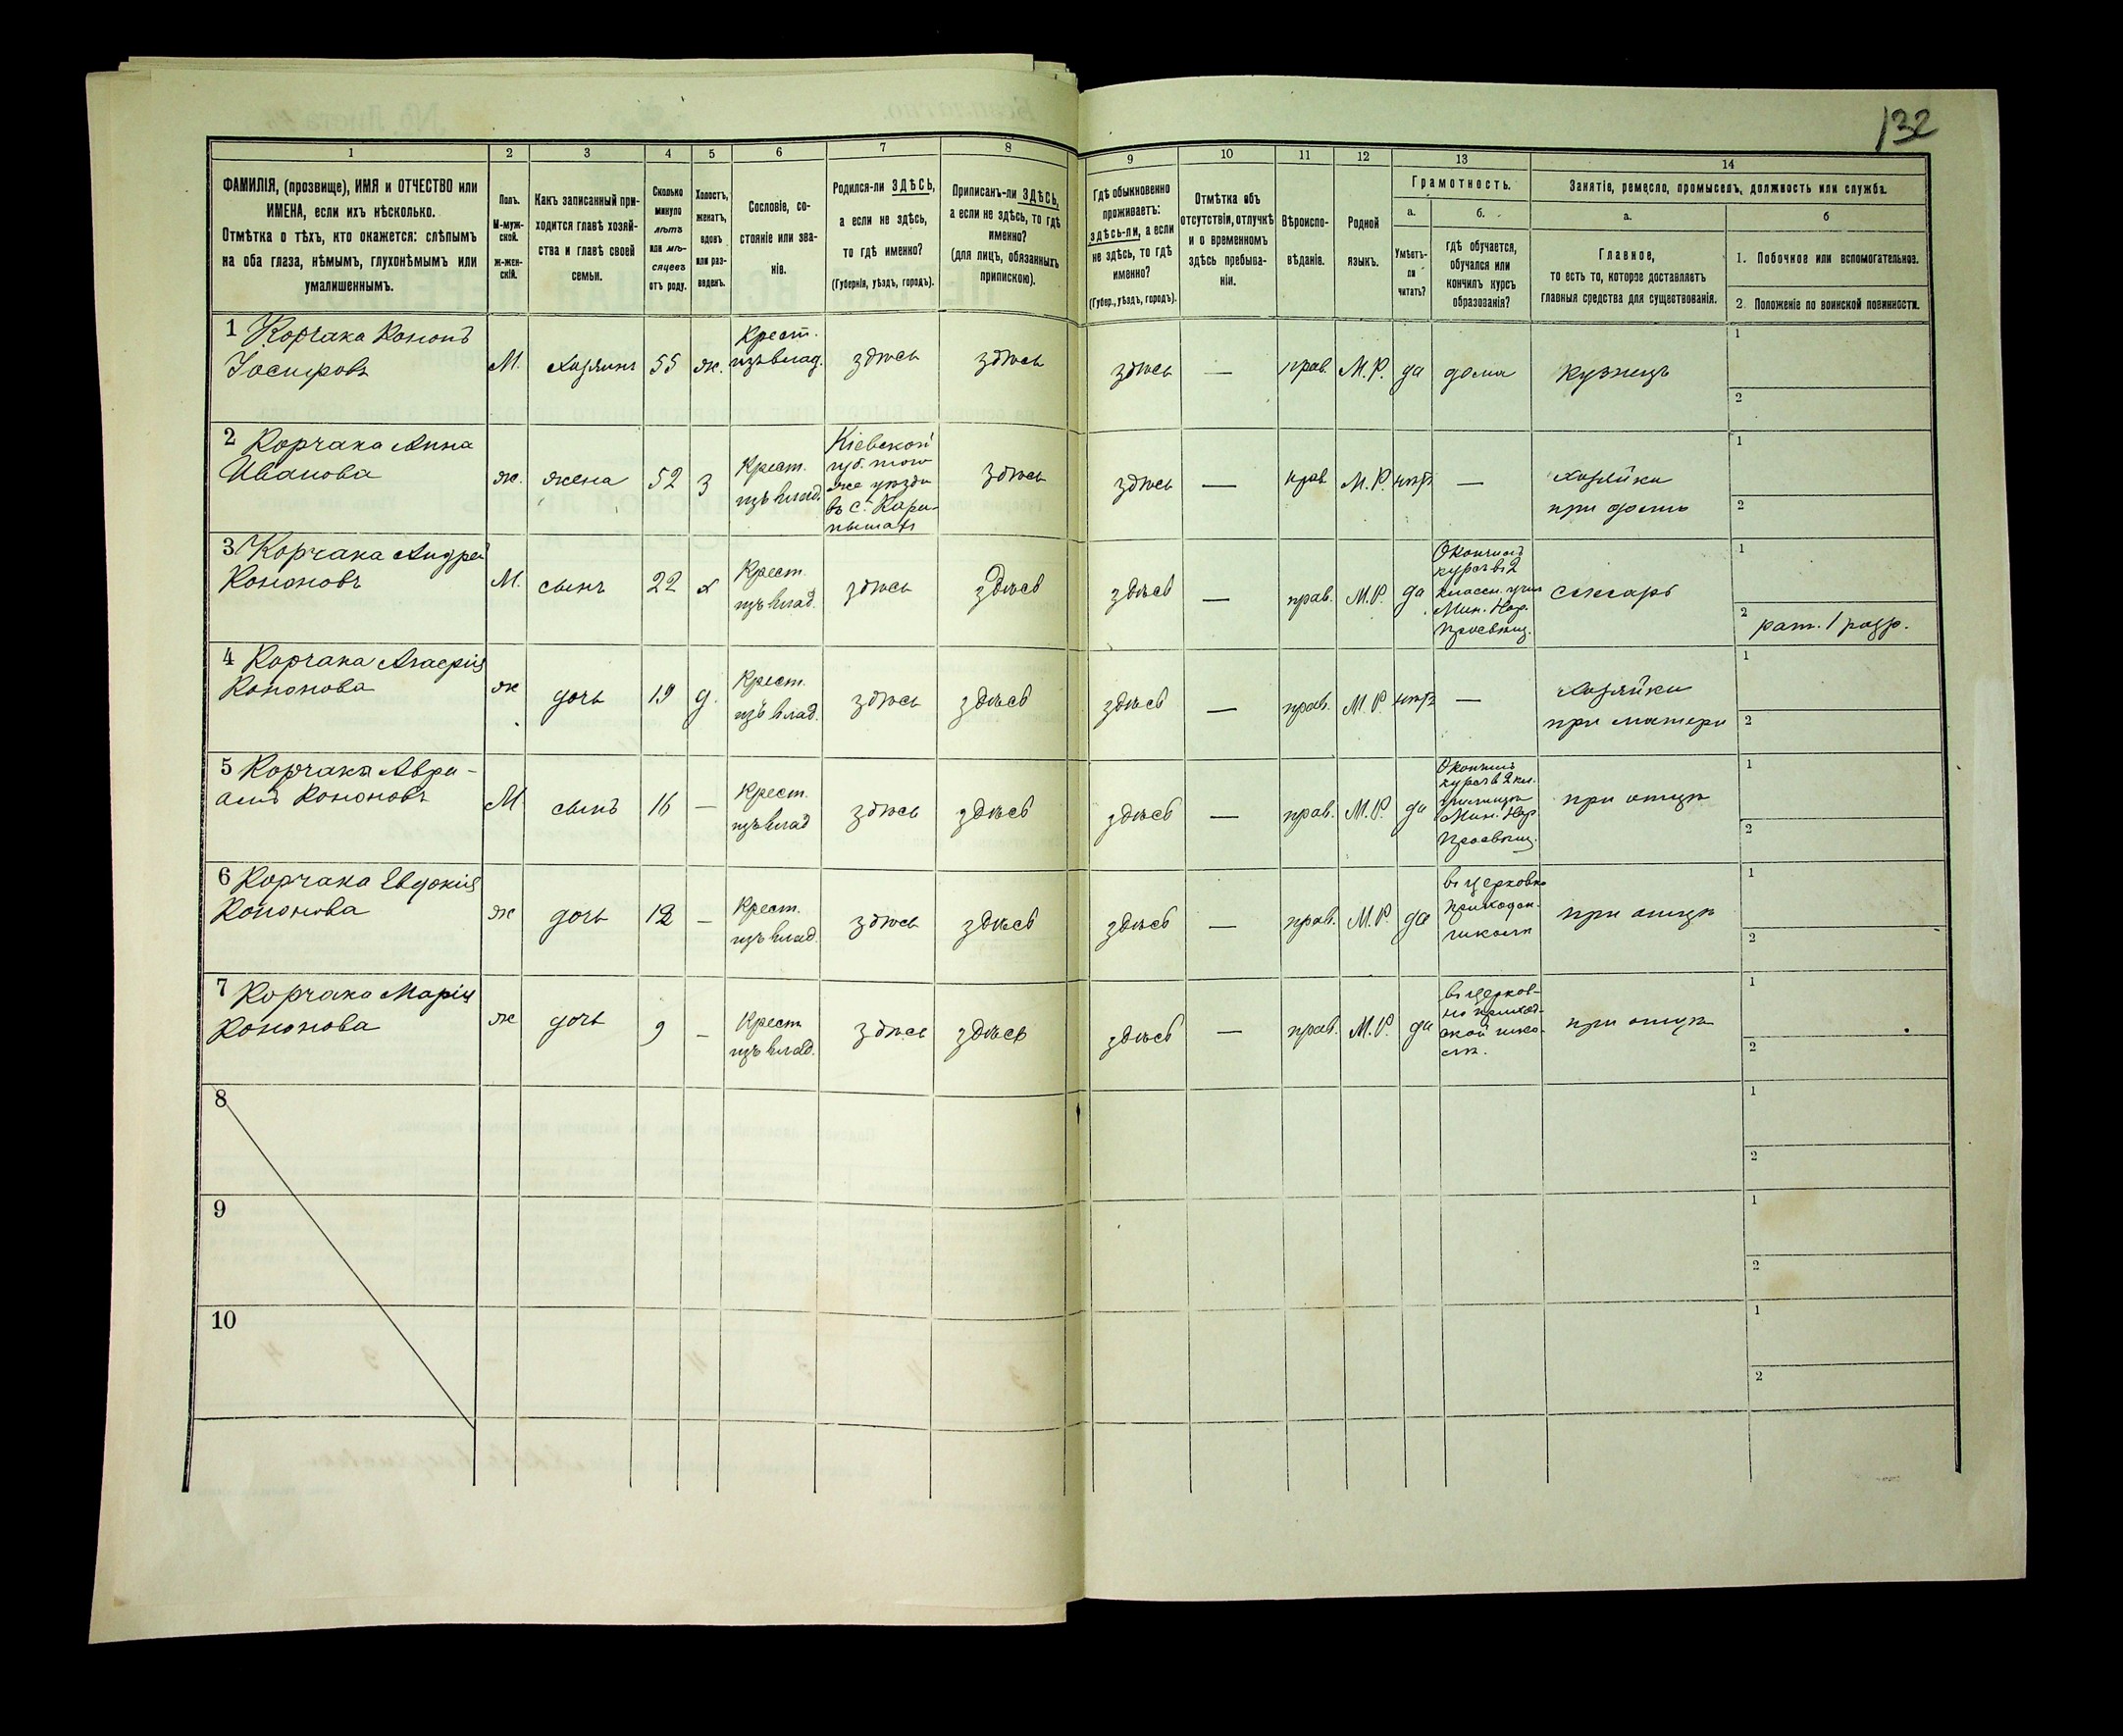 132
1 2 3 4 5 6 7 8 9 10 11 12 13 14
ФАМИЛІЯ, (прозвище), ИМЯ и ОТЧЕСТВО или
ИМЕНА, если ихъ нѣсколько.
Отмѣтка о тѣхъ, кто окажется: слѣпымъ
на оба глаза, нѣмымъ, глухонѣмымъ или
умалишеннымъ.
Полъ.
М-муж-
ской.
Ж-жен-
скій.
Какъ записанный при-
ходится главѣ хозяй-
ства и главѣ своей
семьи.
Сколько
минуло
лѣтъ
или мѣ-
сяцевъ
отъ роду.
Холостъ,
женатъ,
вдовъ
или раз-
веденъ.
Сословіе, со-
стояніе или зва-
ніе.
Родился-ли ЗДѢСЬ,
а если не здѣсь,
то гдѣ именно?
(Губернія, уѣздъ, городъ).
Приписанъ-ли ЗДѢСЬ,
а если не здѣсь, то гдѣ
именно?
(для лицъ, обязанныхъ
припискою).
Гдѣ обыкновенно
проживаетъ:
здѣсь-ли, а если
не здѣсь, то гдѣ
именно?
(Губер., уѣздъ, городъ).
Отмѣтка объ
отсутствіи, отлучкѣ
и о временномъ
здѣсь пребыва-
ніи.
Вѣроиспо-
вѣданіе.
Родной
языкъ.
Грамотность.
а.
Умѣетъ-
ли
читать?
б.
гдѣ обучается,
обучался или
кончилъ курсъ
образованія?
Занятіе, ремесло, промыселъ, должность или служба.
а.
Главное,
то есть то, которое доставляетъ
главныя средства для существованія.
б
1. Побочное или вспомогательное.
2. Положеніе по воинской повинности.
1 Корчака Кононъ
Іосифовъ
М.
хозяинъ
55
ж.
Крест.
изъ влад.
здѣсь
здѣсь
здѣсь
—
прав.
М.Р.
да
дома
кузнецъ
1
2
2 Корчака Анна
Иванова
ж.
жена
52
з
Крест.
изъ влад.
Кіевской
губ. того
же уѣзда
въ с. Кара-
пышахъ
здѣсь
здѣсь
—
прав
М.Р.
нѣтъ
—
хозяйка
при домѣ
1
2
3 Корчака Андрей
Кононовъ
М.
сынъ
22
х
Крест.
изъ влад.
здѣсь
здѣсь
здѣсь
—
прав.
М.Р.
да
Окончилъ
курсъ въ 2
классн. учил
Мин. Нар.
Просвѣщ.
слесарь
1
2 рат. 1 разр.
4 Корчака
Кононова
ж
дочь
19
д.
Крест.
изъ влад.
здѣсь
здѣсь
здѣсь
—
прав.
М.Р.
нѣтъ
—
хозяйка
при матери
1
2
5 Корчака Авра-
амъ Кононовъ
М
сынъ
16
—
Крест.
изъ влад
здѣсь
здѣсь
здѣсь
—
прав.
М.Р.
да
Окончилъ
курсъ въ 2 кл.
училища
Мин. Нар
Просвѣщ.
при отцѣ
1
2
6 Корчака Евдокія
Кононова
ж
дочь
12
—
Крест.
изъ влад.
здѣсь
здѣсь
здѣсь
—
прав.
М.Р.
да
въ церковно
приходск.
школѣ
при отцѣ
1
2
7 Корчака Марія
Кононова
ж
дочь
9
—
Крест
изъ влад.
здѣсь
здѣсь
здѣсь
—
прав.
М.Р.
да
въ церков-
но приход-
ской шко-
лѣ.
при отцѣ
1
2
8
1
2
9
1
2
10
1
2